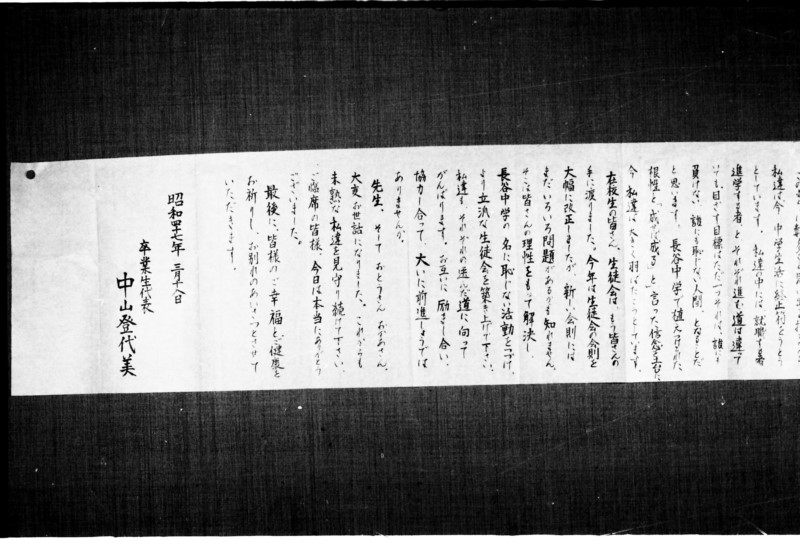 私達は今、中学生活に終止符をうとう
としています。私達の中には、就職する者
進学する者と、それぞれ進む道は違って
いても、目ざす目標はただ一つそれは、誰にも
負けない、誰にも恥じない人間となることだ
と思います。長谷中学で植えつけられた
根性と「成せば成る」と言った信念を土台に
今、私達は大きく羽ばたこうとしています。
在校生の皆さん、生徒会は、もう皆さんの
手に渡りました。今年は生徒会の会則を
大幅に改正しましたが、新しい会則には
まだいろいろ問題があるかも知れません。
そこは皆さんの理性をもって解決し、
長谷中学の名に恥じない活動をつづけ、
より立派な生徒会を築き上げて下さい。
私達も、それぞれの選んだ道に向って
がんばります。お互いに励まし合い、
協力し合って、大いに前進しようでは
ありませんか。
先生、そしておとうさん、おかあさん、
大変お世話になりました。これからも
未熟な私達を見守り続けて下さい。
ご臨席の皆様、今日は本当にありがとう
ございました。
最後に、皆様のご幸福とご健康を
お祈りし、お別れのあいさつとさせて
いただきます。
昭和四七年 三月十八日
卒業生代表
中山登代美